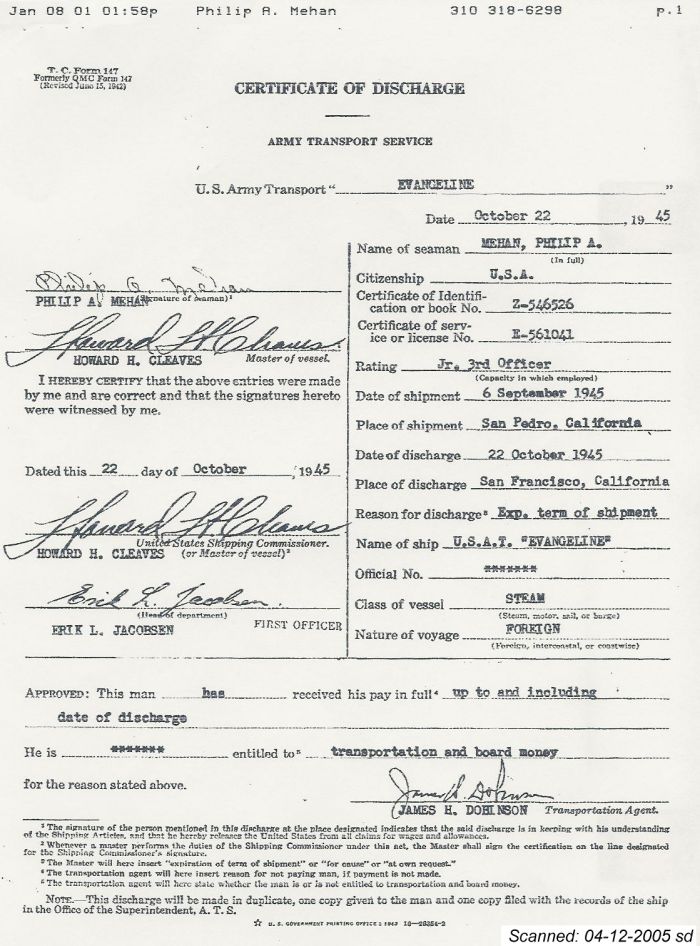 Jan 08 01 01:58p Philip A. Mehan 310 318-6298 p.1
T. C. Form 147
Formerly QMC Form 147
(Revised June 15, 1942)
CERTIFICATE OF DISCHARGE
ARMY TRANSPORT SERVICE
U. S. Army Transport “ EVANGELINE ”
Date October 22, 1945
Philip A. Mehan
PHILIP A. MEHAN (Signature of seaman)¹
Howard H. Cleaves
HOWARD H. CLEAVES Master of vessel.
I HEREBY CERTIFY that the above entries were made
by me and are correct and that the signatures hereto
were witnessed by me.
Dated this 22 day of October, 1945
Howard H. Cleaves
United States Shipping Commissioner.
HOWARD H. CLEAVES (or Master of vessel)²
Erik L. Jacobsen
(Head of department)
ERIK L. JACOBSEN FIRST OFFICER
Name of seaman MEHAN, PHILIP A.
(In full)
Citizenship U.S.A.
Certificate of Identifi-
cation or book No. Z-546526
Certificate of serv-
ice or license No. E-561041
Rating Jr. 3rd Officer
(Capacity in which employed)
Date of shipment 6 September 1945
Place of shipment San Pedro, California
Date of discharge 22 October 1945
Place of discharge San Francisco, California
Reason for discharge³ Exp. term of shipment
Name of ship U.S.A.T. "EVANGELINE"
Official No. *******
Class of vessel STEAM
(Steam, motor, sail, or barge)
Nature of voyage FOREIGN
(Foreign, intercoastal, or coastwise)
APPROVED: This man has received his pay in full⁴ up to and including
date of discharge
He is ******* entitled to⁵ transportation and board money
for the reason stated above.
James H. Dohinson
JAMES H. DOHINSON Transportation Agent.
¹ The signature of the person mentioned in this discharge at the place designated indicates that the said discharge is in keeping with his understanding
of the Shipping Articles, and that he hereby releases the United States from all claims for wages and allowances.
² Whenever a master performs the duties of the Shipping Commissioner under this act, the Master shall sign the certification on the line designated
for the Shipping Commissioner's signature.
³ The Master will here insert “expiration of term of shipment” or “for cause” or “at own request.”
⁴ The transportation agent will here insert reason for not paying man, if payment is not made.
⁵ The transportation agent will here state whether the man is or is not entitled to transportation and board money.
NOTE.—This discharge will be made in duplicate, one copy given to the man and one copy filed with the records of the ship
in the Office of the Superintendent, A. T. S.
☆ U. S. GOVERNMENT PRINTING OFFICE : 1943 16—28354-2
Scanned: 04-12-2005 sd